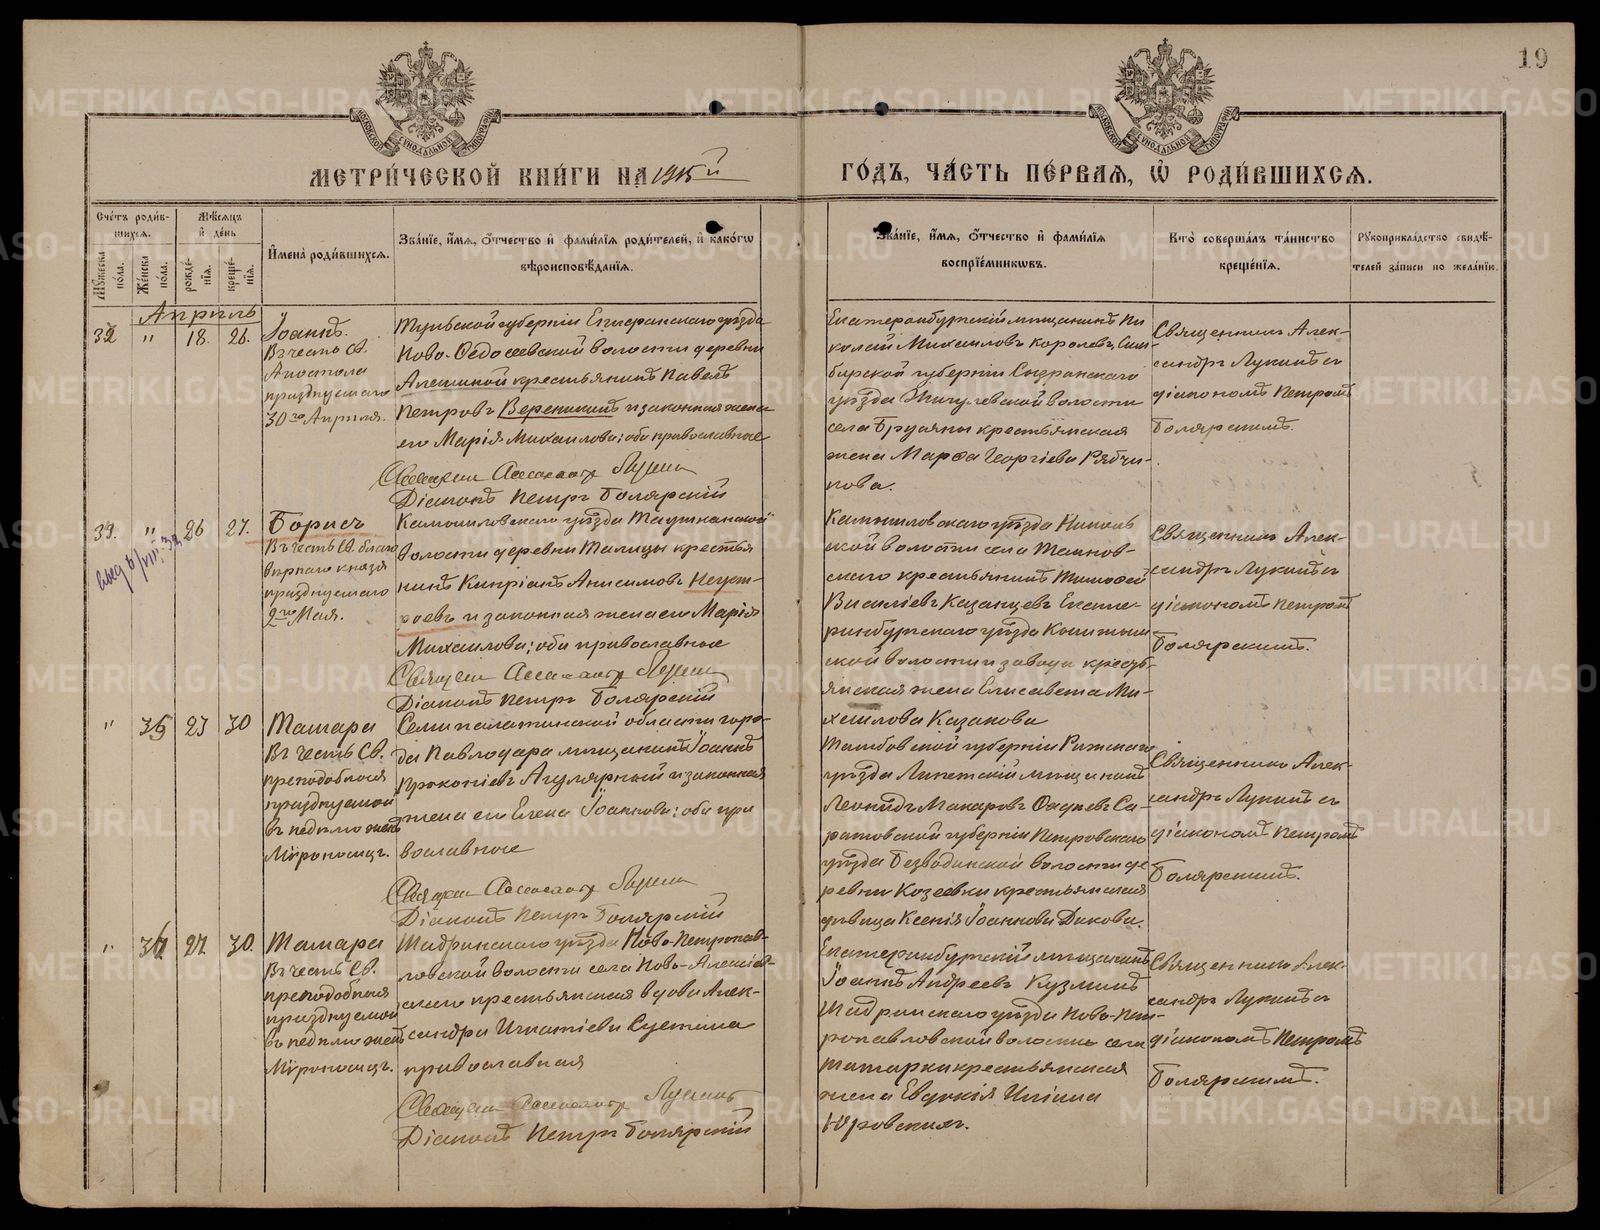 19
МЕТРИ́ЧЕСКОЙ КНИ́ГИ НА 1915й
ГО́ДЪ, ЧА́СТЬ ПЕ́РВАЯ, Ѡ҆ РОДИ́ВШИХСЯ.
Сче́тъ роди́в-
шихся.
Му́жеска
по́ла.
Же́нска
по́ла.
Мѣ́сяцъ
и҆ де́нь
рожде-
нїя.
креще́-
нїя.
И҆мена̀ роди́вшихся.
Зва́нїе, и҆́мя, ѻ҆́тчество и҆ фами́лїя роди́телей, и҆ како́гѡ
вѣроисповѣ́данїя.
Зва́нїе, и҆́мя, ѻ҆́тчество и҆ фами́лїя
воспрїе́мникѡвъ.
Кто̀ соверша́лъ та́инство
креще́нїя.
Рꙋкоприкла́дство свидѣ́-
телей за́писи по жела́нїю.
Апрѣль
32 " 18. 26.
Іоаннъ.
Въ честь Св.
Апостола
празднуемаго
30го Апрѣля.
губерніи Епифанскаго уѣзда
Ново-Ѳедосеевской волости деревни
крестьянинъ Павелъ
Петровъ и законная жена
его Марія Михаилова; оба православные
Священ Александр Лукин
Діаконъ Петръ Болярскій
Екатеринбургскій мѣщанинъ Ни
колай Михаиловъ Королевъ, Сим-
бирской губерніи Сызранскаго
уѣзда Жигулевской волости
села крестьянская
жена Марѳа Георгіева Рябчи-
кова.
Священникъ Алек-
сандръ Лукинъ съ
діакономъ Петромъ
Болярскимъ.
33. " 26 27.
Борисъ
Въ честь Св. благо
вѣрнаго князя
празднуемаго
2го Мая.
Камышловскаго уѣзда
волости деревни Талицы кресть
нинъ Кипріанъ Анисимовъ
и законная жена его Марія
Михаилова; оба православные
Священ Александр Лукин
Діаконъ Петръ Болярскій
Камышловскаго уѣзда Николь
ской волости села
скаго крестьянинъ Тимофей
Василіевъ Казанцевъ Екате-
ринбургскаго уѣзда
ской волости и завода кресть-
янская жена Елисавета Ми-
хаилова Казакова
Священникъ Алек-
сандръ Лукинъ съ
діакономъ Петромъ
Болярскимъ.
" 35 23 30
Тамара
Въ честь Св.
преподобная
празднуемой
въ недѣлю женъ
Мѵроносицъ.
Семипалатинской области горо-
да Павлодара мѣщанинъ Іоаннъ
Прокопіевъ и законная
жена его Елена Іоаннова; оба пра
вославные
Священ Александр Лукин
Діаконъ Петръ Болярскій
Тамбовской губерніи
уѣзда Липетскій мѣщанинъ
Леонидъ Макаровъ Са-
ратовской губерніи Петровскаго
уѣзда волости де
ревни Козеевки крестьянская
дѣвица Ксенія Іоаннова Дикова.
Священникъ Алек-
сандръ Лукинъ съ
діакономъ Петромъ
Болярскимъ.
" 36 27 30.
Тамара
Въ честь Св.
преподобная
празднуемой
въ недѣлю женъ
Мѵроносицъ.
Шадринскаго уѣзда Ново-Петропав-
ловской волости села Ново-Алексѣев-
скаго крестьянская вдова Алек-
сандра Игнатіева Суетина
православная
Священ Александр Лукинъ
Діаконъ Петръ Болярскій
Екатеринбургскій мѣщанинъ
Іоаннъ Андреевъ Кузминъ
Шадринскаго уѣзда Ново-Пет-
ропавловской волости села
крестьянская
жена Евдокія Иліина
Юровскихъ.
Священникъ Алек-
сандръ Лукинъ съ
діакономъ Петромъ
Болярскимъ.
METRIKI.GASO-URAL.RU